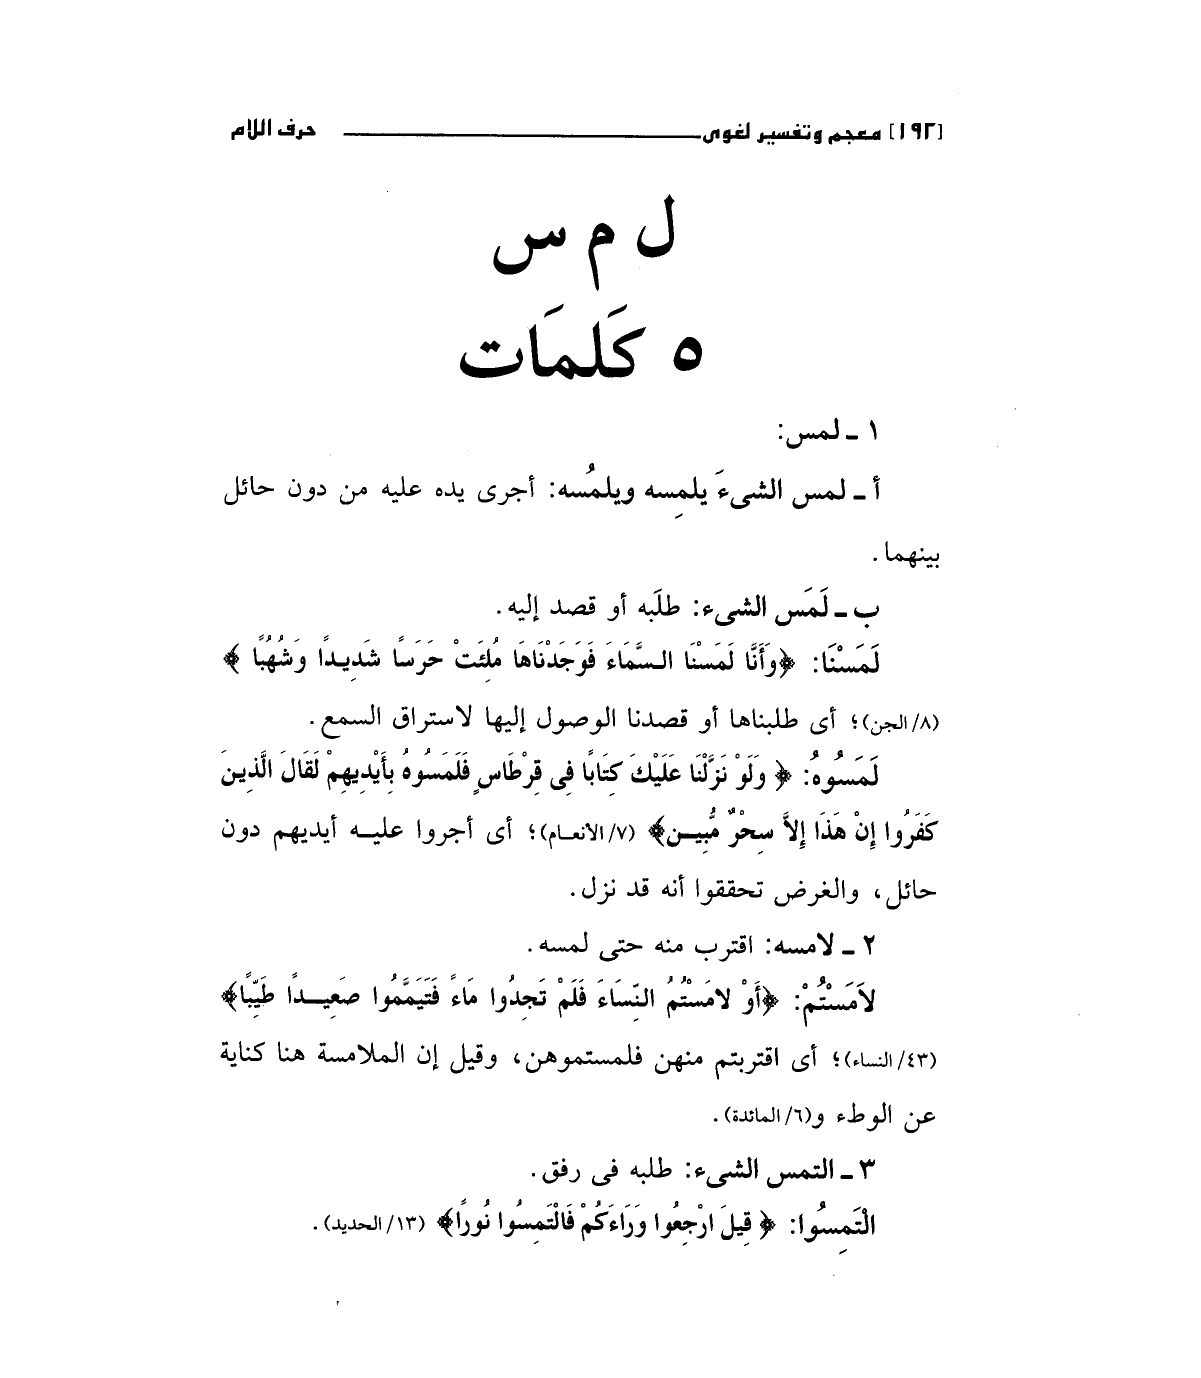 [١٩٢] معجم وتفسير لغوى حرف اللام
ل م س
٥ كَلمَات
١ ـ لمس:
أ ـ لمس الشىءَ يلمِسه ويلمُسه: أجرى يده عليه من دون حائل
بينهما.
ب ـ لَمَس الشىء: طلَبه أو قصد إليه.
لَمَسْنَا: ﴿وَأَنَّا لَمَسْنَا السَّمَاءَ فَوَجَدْنَاهَا مُلِئَتْ حَرَسًا شَدِيدًا وَشُهُبًا ﴾
(٨/الجن)؛ أى طلبناها أو قصدنا الوصول إليها لاستراق السمع.
لَمَسُوهُ: ﴿ وَلَوْ نَزَّلْنَا عَلَيْكَ كِتَابًا فِى قِرْطَاسٍ فَلَمَسُوهُ بِأَيْدِيهِمْ لَقَالَ الَّذِينَ
كَفَرُوا إِنْ هَذَا إِلاَّ سِحْرٌ مُّبِين﴾ (٧/الانعام)؛ أى أجروا عليه أيديهم دون
حائل، والغرض تحققوا أنه قد نزل.
٢ ـ لامسه: اقترب منه حتى لمسه.
لاَمَسْتُمْ: ﴿أَوْ لامَسْتُمُ النِّسَاءَ فَلَمْ تَجِدُوا مَاءً فَتَيَمَّمُوا صَعِيدًا طَيِّبًا﴾
(٤٣/النساء)؛ أى اقتربتم منهن فلمستموهن، وقيل إن الملامسة هنا كناية
عن الوطء و(٦/المائدة).
٣ ـ التمس الشىء: طلبه فى رفق.
الْتَمِسُوا: ﴿ قِيلَ ارْجِعُوا وَرَاءَكُمْ فَالْتَمِسُوا نُورًا﴾ (١٣/الحديد).